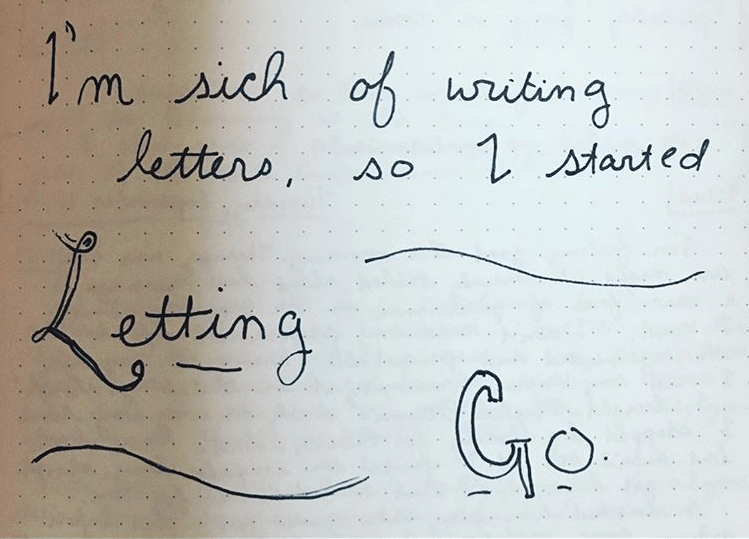 I'm sick of writing
letters, so I started
Letting
Go.